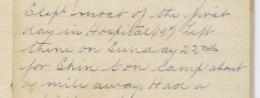 Slept most of the first
day in Hospital 197 left
there on Sunday 22nd
for Shin Con Camp about
a mile away. Had a